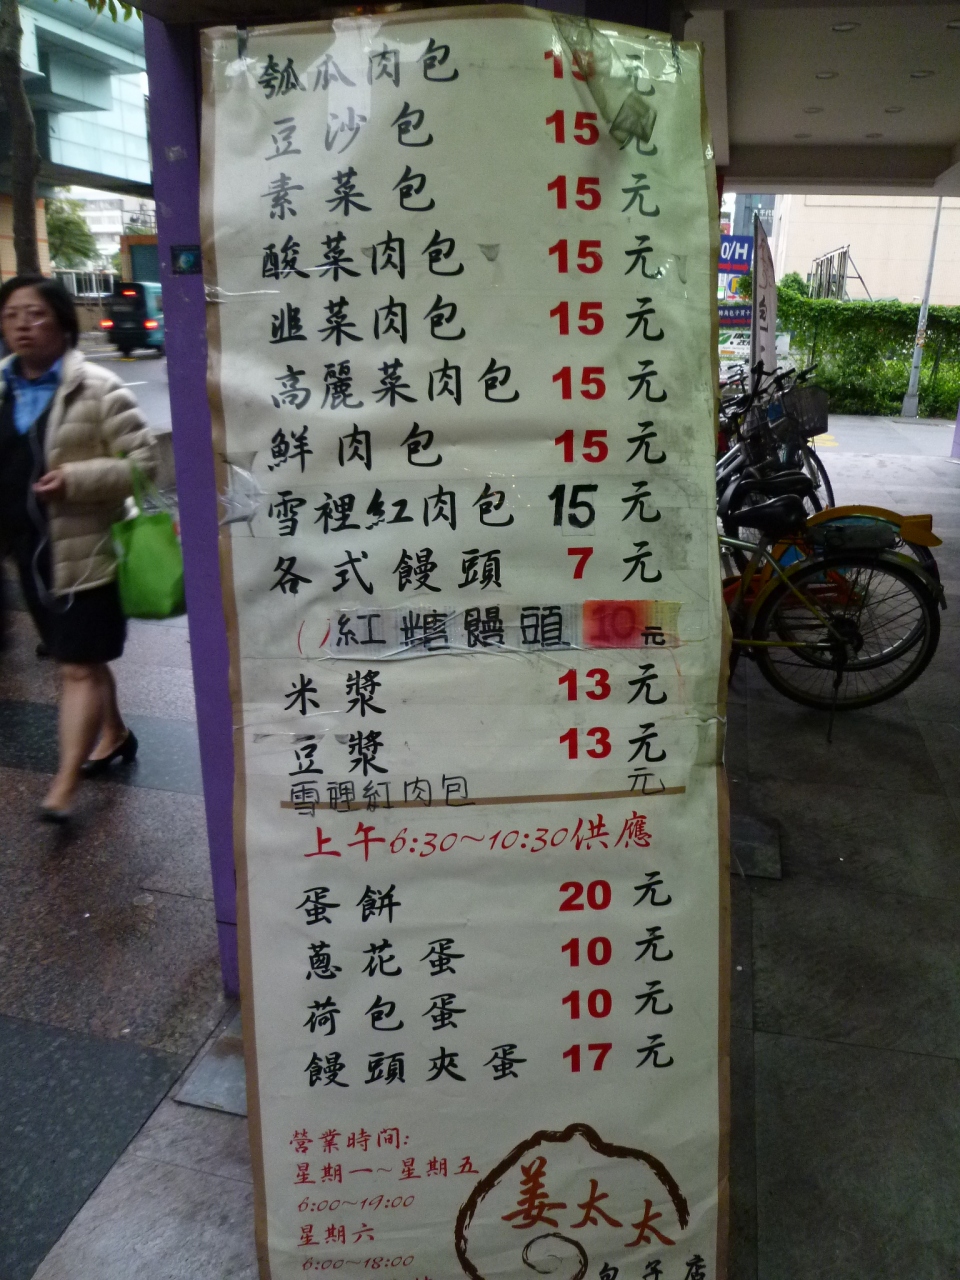 瓠瓜肉包 15元
豆沙包 15元
素菜包 15元
酸菜肉包 15元
韮菜肉包 15元
高麗菜肉包 15元
鮮肉包 15元
雪裡紅肉包 15元
各式饅頭 7元
()紅糖饅頭 10元
米漿 13元
豆漿 13元
雪裡紅肉包 元
上午6:30~10:30供應
蛋餅 20元
蔥花蛋 10元
荷包蛋 10元
饅頭夾蛋 17元
營業時间:
星期一~星期五
6:00~19:00
星期六
6:00~18:00
姜太太
包子店
0/H